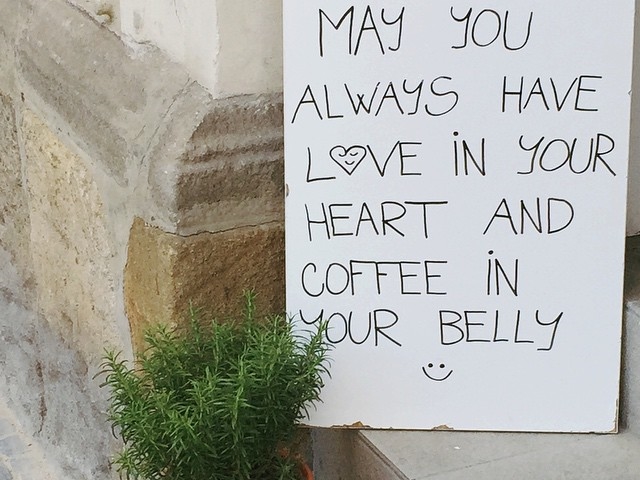 MAY YOU
ALWAYS HAVE
LOVE iN YOUR
HEART AND
COFFEE iN
YOUR BELLY